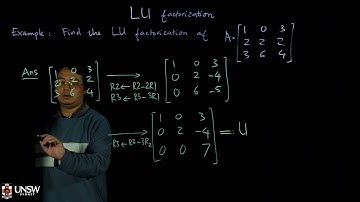 LU factorization
Example: Find the LU factorization of A = [1 0 3
2 2 2
3 6 4]
Ans [1 0 3
2 2 2
3 6 4] R2 ← R2-2R1
R3 ← R3-3R1 [1 0 3
0 2 -4
0 6 -5]
R3 ← R3-3R2 [1 0 3
0 2 -4
0 0 7] = U
UNSW
SYDNEY